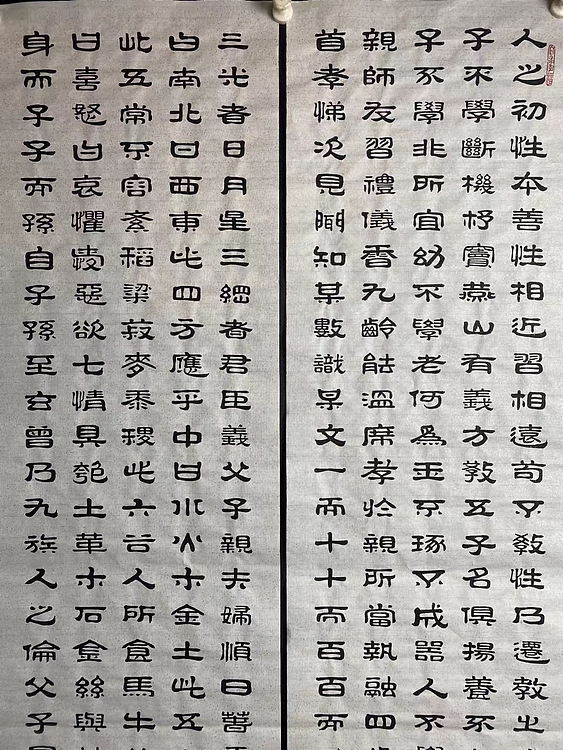 人之初性本善性相近習相遠苟不教性乃遷教之
子不學斷機杼竇燕山有義方教五子名俱揚養不
子不學非所宜幼不學老何為玉不琢不成器人不
親師友習禮儀香九齡能溫席孝於親所當執融四
首孝悌次見聞知某數識某文一而十十而百百而
三光者日月星三綱者君臣義父子親夫婦順曰春
曰南北曰西東此四方應乎中曰水火木金土此五
此五常不容紊稻粱菽麥黍稷此六谷人所食馬牛
曰喜怒曰哀懼愛惡欲七情具匏土革木石金絲與
身而子子而孫自子孫至玄曾乃九族人之倫父子